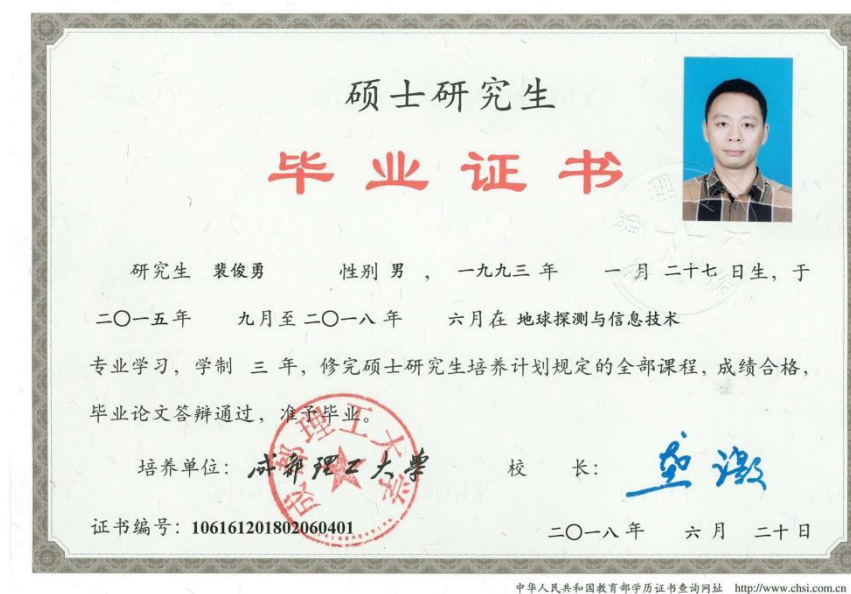 硕士研究生
毕业证书
研究生 裴俊勇 性别 男 ， 一九九三 年 一 月 二十七 日生，于
二〇一五年 九月至 二〇一八 年 六月在 地球探测与信息技术
专业学习，学制 三 年，修完硕士研究生培养计划规定的全部课程，成绩合格，
毕业论文答辩通过，准予毕业。
培养单位：成都理工大学 校 长：
成都理工大学
证书编号：106161201802060401 二〇一八 年 六 月 二十 日
中华人民共和国教育部学历证书查询网址 http://www.chsi.com.cn